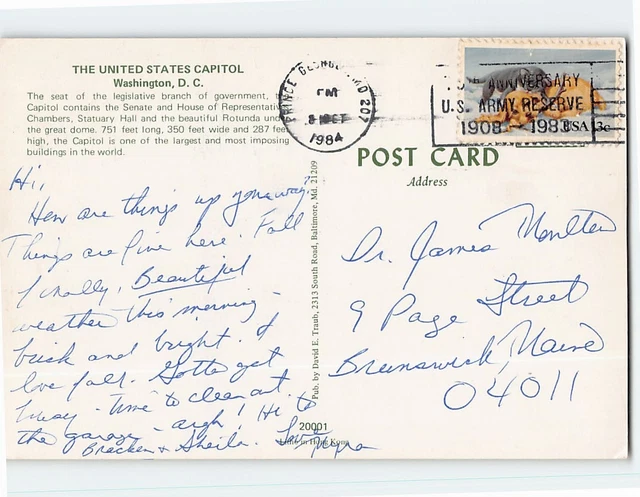 THE UNITED STATES CAPITOL
Washington, D. C.
The seat of the legislative branch of government, the
Capitol contains the Senate and House of Representative
Chambers, Statuary Hall and the beautiful Rotunda under
the great dome. 751 feet long, 350 feet wide and 287 feet
high, the Capitol is one of the largest and most imposing
buildings in the world.
PRINCE GEORGE MD 207
PM
8 OCT
1984
ANNIVERSARY
U.S. ARMY RESERVE
1908 1983
USA 13c
POST CARD
Address
Hi,
How are things up your way?
Things are fine here. Fall
finally, Beautiful
weather this morning -
brisk and bright. I
love fall. Gotta get
busy - time to clean out
the garage - argh! Hi to
Bracken & Sheila. Love,
Dr. James Moulton
9 Page Street
Brunswick, Maine
04011
Pub. by David E. Traub, 2313 South Road, Baltimore, Md. 21209
20001